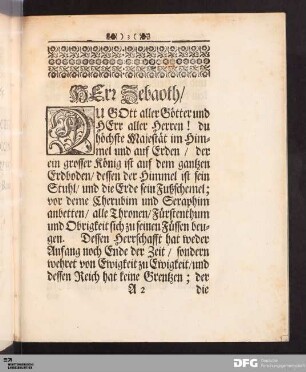 ) 3 (
HErr Zebaoth/
DU GOtt aller Götter und
HErr aller Herren! du
höchste Majestät im Him-
mel und auf Erden/ der
ein grosser König ist auf dem gantzen
Erdboden/ dessen der Himmel ist sein
Stuhl/ und die Erde sein Fußschemel;
vor deme Cherubim und Seraphim
anbetten/ alle Thronen/ Fürstenthum
und Obrigkeit sich zu seinen Füssen beu-
gen. Dessen Herrschafft hat weder
Anfang noch Ende der Zeit/ sondern
wehret von Ewigkeit zu Ewigkeit/ und
dessen Reich hat keine Grentzen; der
A 2 die
DFG